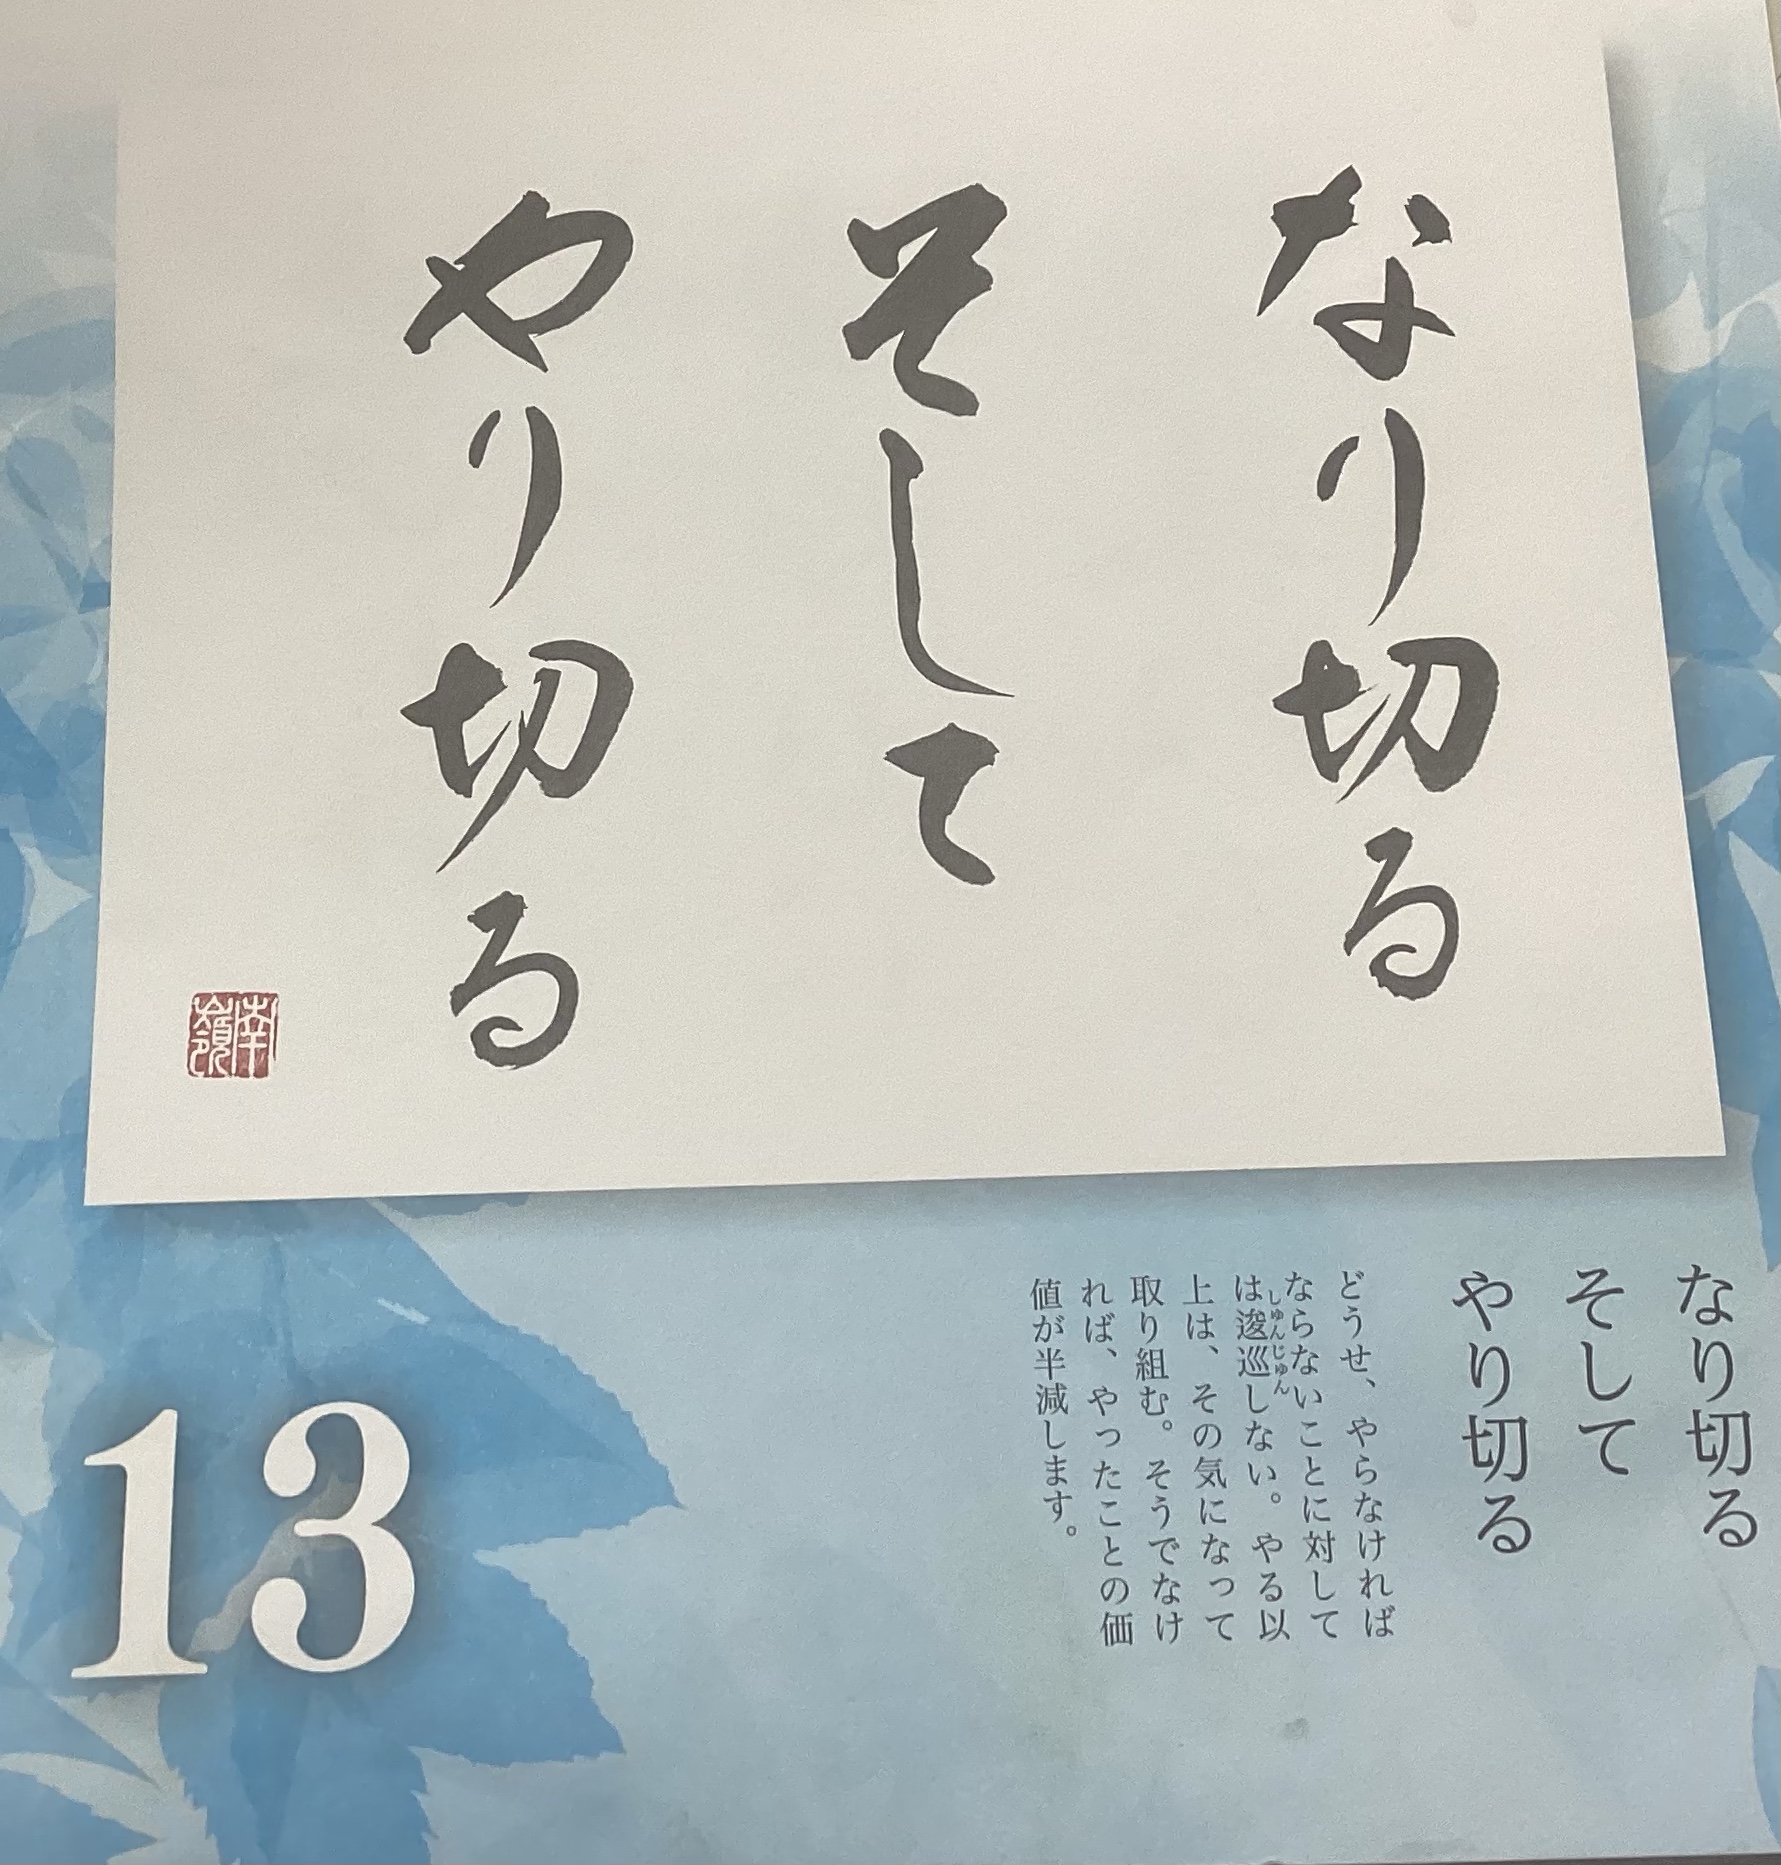 なり切る
そして
やり切る
南嶺
なり切る
そして
やり切る
どうせ、やらなければ
ならないことに対して
は逡巡しない。やる以
しゅんじゅん
上は、その気になって
取り組む。そうでなけ
れば、やったことの価
値が半減します。
13